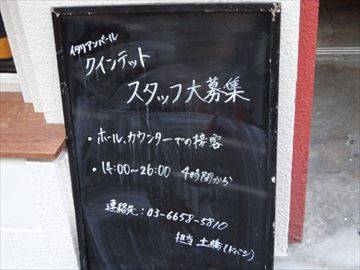 イタリアンバール
クインテット
スタッフ大募集
・ホール、カウンターでの接客
・14:00～26:00 4時間から
連絡先:03-6658-5810
担当 土橋(ドバシ)